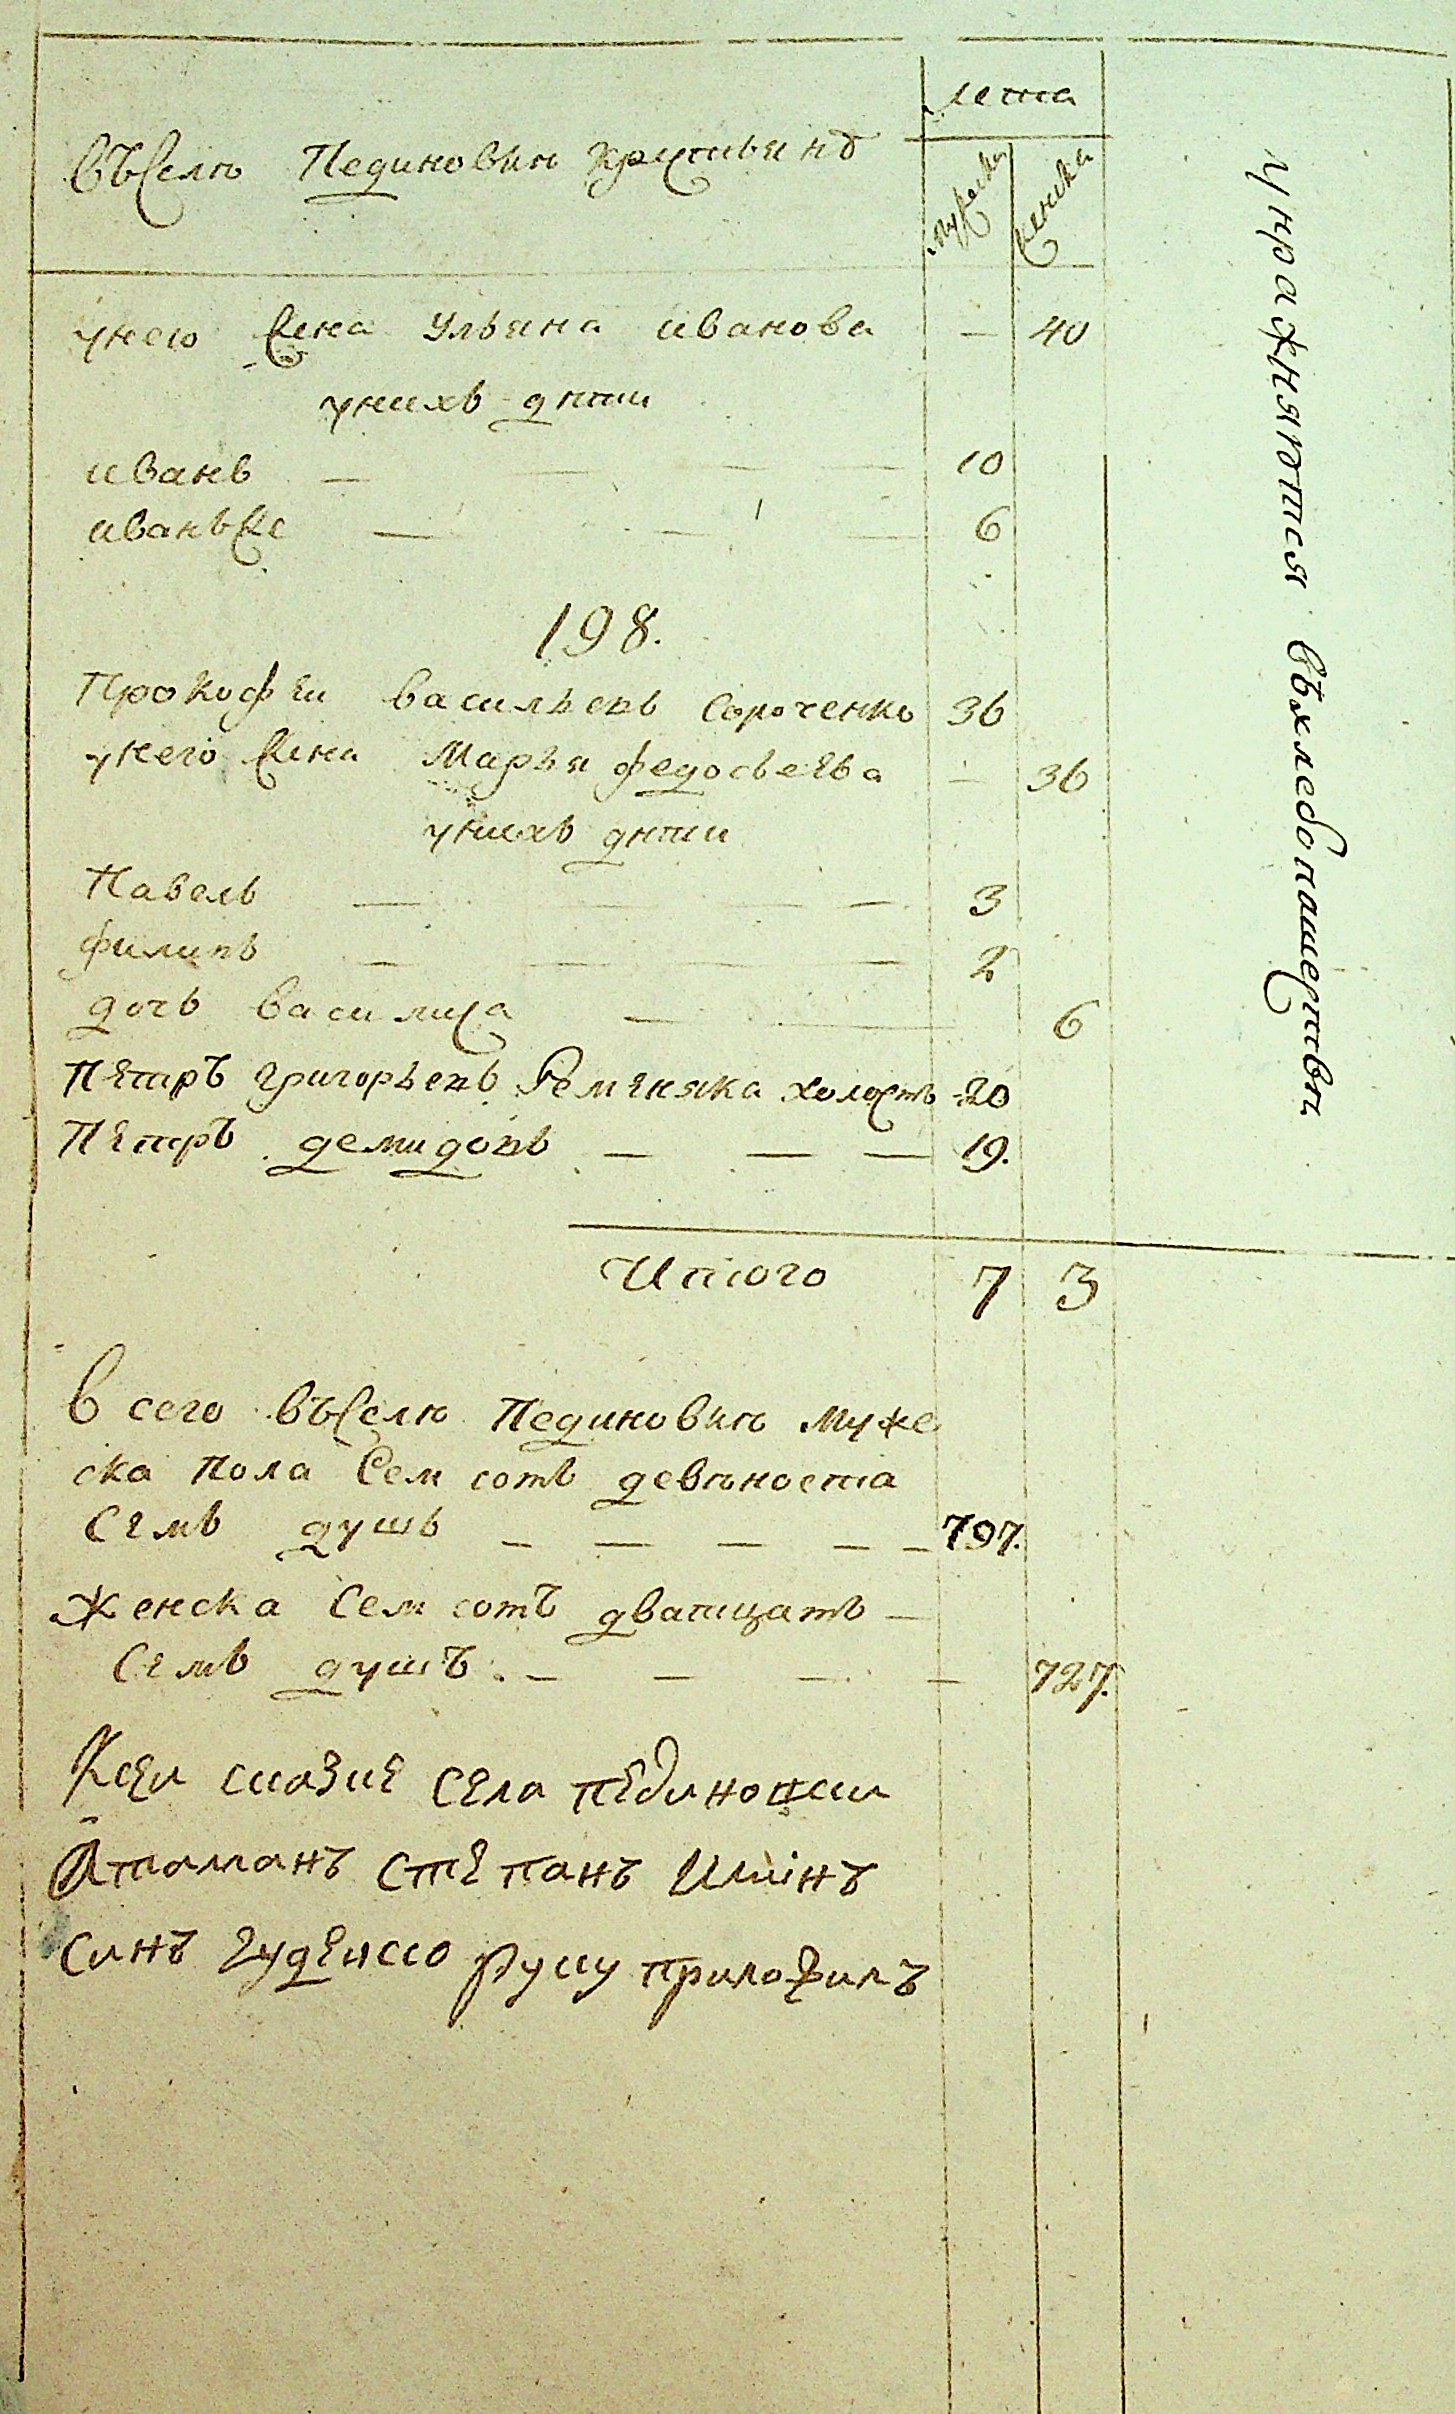 лета
въселѣ Пединовкѣ крестьянъ
мужеска женска
унего жена Ульяна иванова — 40
унихъ дѣти
иванъ — 10
иванъже — 6
198.
Прокофеи васильевъ Сороченко 36
унего жена Марья федосьева — 36
унихъ дѣти
Павелъ — 3
филипъ — 2
дочь василиса — 6
Петръ григорьевъ Ременяка холостъ 20
Петръ демидовъ — 19.
Итого 7 3
всего въселѣ Пединовкѣ муже
ска пола Семъ сотъ девѣноста
Семъ душъ — 797.
женска Семъ сотъ дватцать
Семъ душъ — 727.
Ксеи сказке села пединовки
Атаманъ степанъ
синъ руку приложилъ
упражняются вхлебопашествѣ